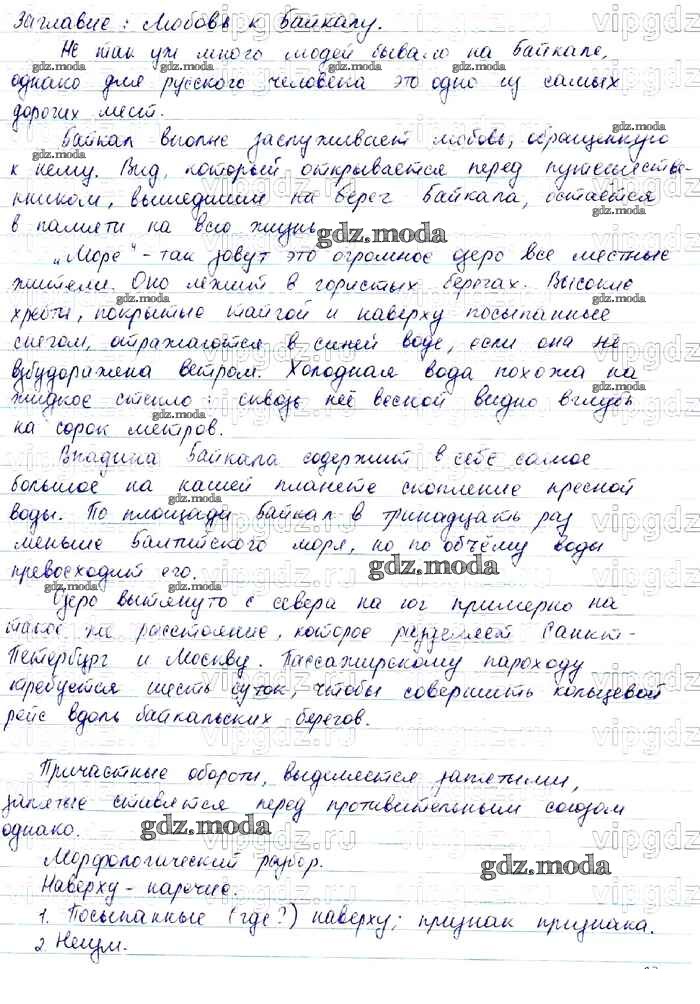 Заглавие: Любовь к Байкалу.
Не так уж много людей бывало на Байкале,
однако для русского человека это одно из самых
дорогих мест.
Байкал вполне заслуживает любовь, обращенную
к нему. Вид, который открывается перед путешестве-
нником, вышедшим на берег Байкала, остаётся
в памяти на всю жизнь.
„Море" - так зовут это огромное озеро все местные
жители. Оно лежит в гористых берегах. Высокие
хребты, покрытые тайгой и наверху посыпанные
снегом, отражаются в синей воде, если она не
взбудоражена ветром. Холодная вода похожа на
жидкое стекло: сквозь неё весной видно вглубь
на сорок метров.
Впадина Байкала содержит в себе самое
большое на нашей планете скопление пресной
воды. По площади Байкал в тринадцать раз
меньше Балтийского моря, но по объёму воды
превосходит его.
Озеро вытянуто с севера на юг примерно на
такое же расстояние, которое разделяет Санкт-
Петербург и Москву. Пассажирскому пароходу
требуется шесть суток, чтобы совершить кольцевой
рейс вдоль байкальских берегов.
Причастные обороты, выделяется запятыми,
запятые ставятся перед противительным союзом
однако.
Морфологический разбор.
Наверху - наречие.
1. Посыпанные (где?) наверху; признак признака.
2 Неизм.
gdz.moda
vipgdz.ru